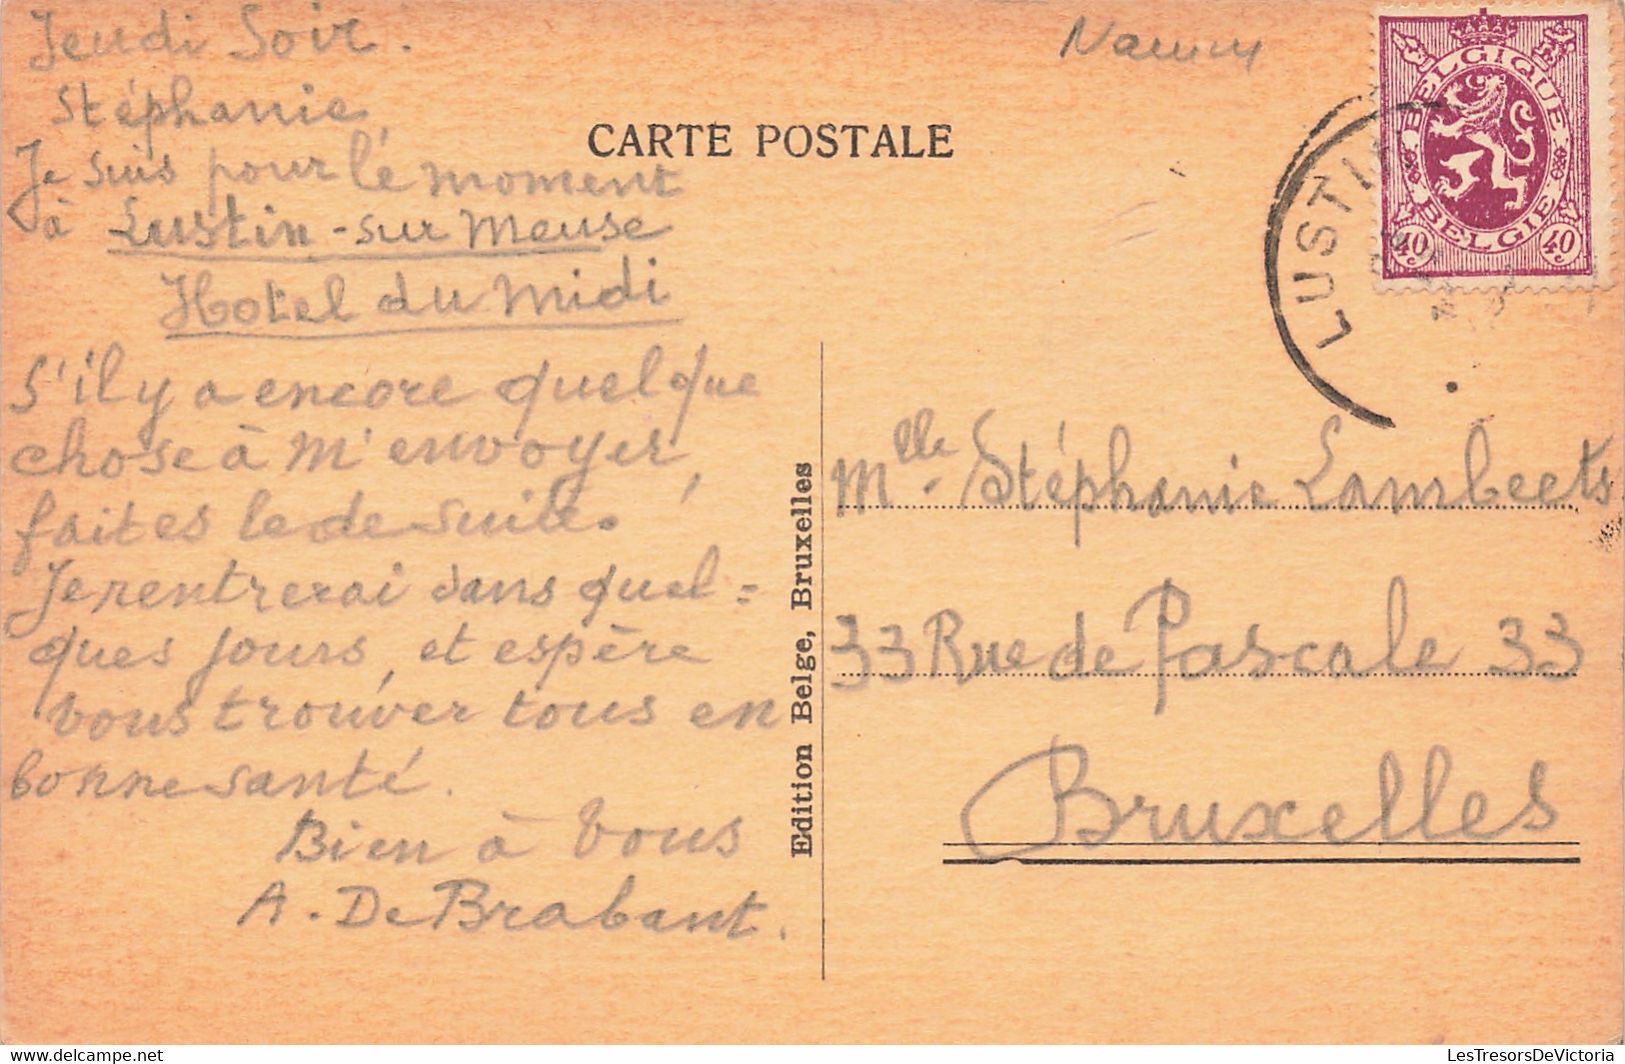 Jeudi Soir.
Stéphanie
Je suis pour le moment
à Lustin-sur Meuse
Hotel du Midi
S'il y a encore quelque
chose à m'envoyer,
faites le de suite.
Je rentrerai dans quel=
ques jours, et espère
vous trouver tous en
bonne santé.
Bien à vous
A. De Brabant.
CARTE POSTALE
Edition Belge, Bruxelles
BELGIQUE
BELGIE
40c 40c
LUSTIN
Mlle. Stéphanie Lambeets
33 Rue de Pascale 33
Bruxelles
LesTresorsDeVictoria